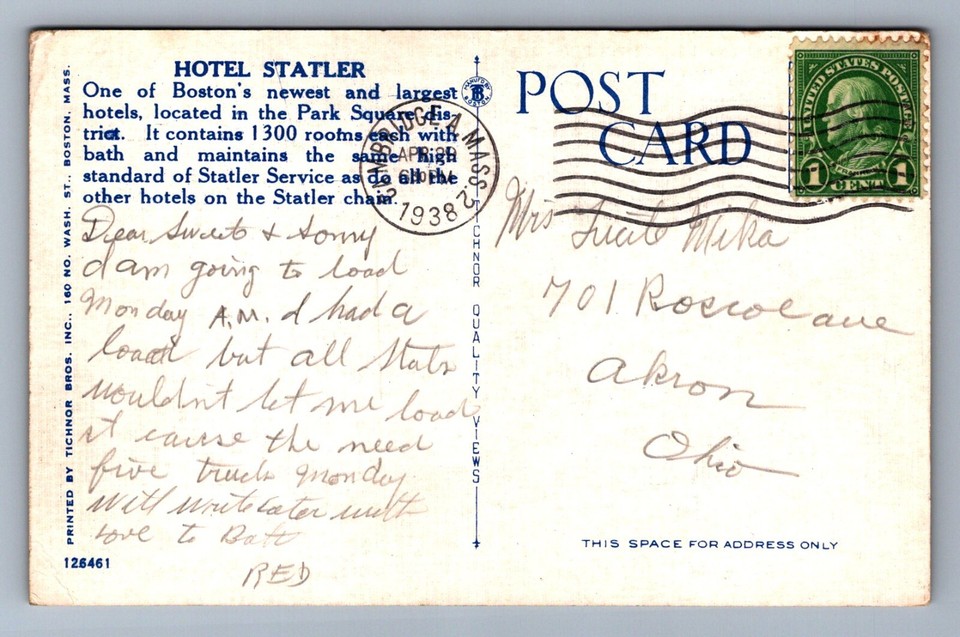 HOTEL STATLER
One of Boston's newest and largest
hotels, located in the Park Square dis-
trict. It contains 1300 rooms each with
bath and maintains the same high
standard of Statler Service as do all the
other hotels on the Statler chain.
Dear Sweets & Sonny
I am going to load
Monday A.M. I had a
load but all States
wouldn't let me load
it cause the need
five trucks Monday
Will write later with
love to Both
RED
126461
PRINTED BY TICHNOR BROS. INC., 160 NO. WASH. ST., BOSTON, MASS.
TICHNOR QUALITY VIEWS
MANUF'D BY
TB
BOSTON
POST
CARD
CAMBRIDGE A MASS. 2
APR 29
PM
1938
UNITED STATES POSTAGE
FRANKLIN
1 CENT 1
Mrs Mika
701 Roscoe ave
Akron
Ohio
THIS SPACE FOR ADDRESS ONLY